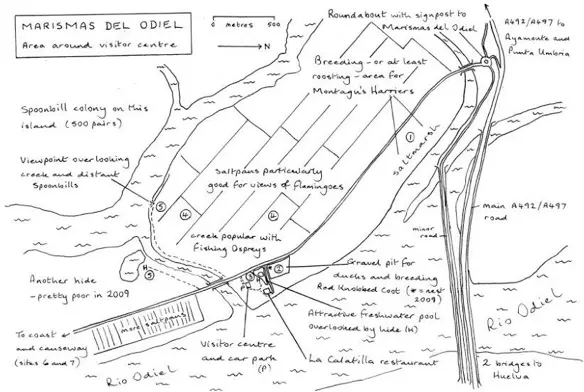 MARISMAS DEL ODIEL
Area around visitor centre
0 metres 500
N
Roundabout with signpost to
Marismas del Odiel
A492/A497
to
Ayamonte and
Punta Umbria
Breeding - or at least
roosting - area for
Montagu's Harriers
Spoonbill colony on this
island (500 pairs)
1
saltmarsh
Viewpoint overlooking
creek and distant
Spoonbills
saltpans particularly
good for views of flamingoes
5
4
4
main A492/A497
road
minor
road
creek popular with
Fishing Ospreys
Gravel pit for
ducks and breeding
Red Knobbed Coot (* = nest
2009)
H
5
3
H
2
P
Another hide
- pretty poor in 2009
Attractive freshwater pool
overlooked by hide (H)
more saltpans
To coast
and causeway
(sites 6 and 7)
Visitor centre
and car park
(P)
La Calatilla restaurant
Rio Odiel
Rio Odiel
2 bridges to
Huelva